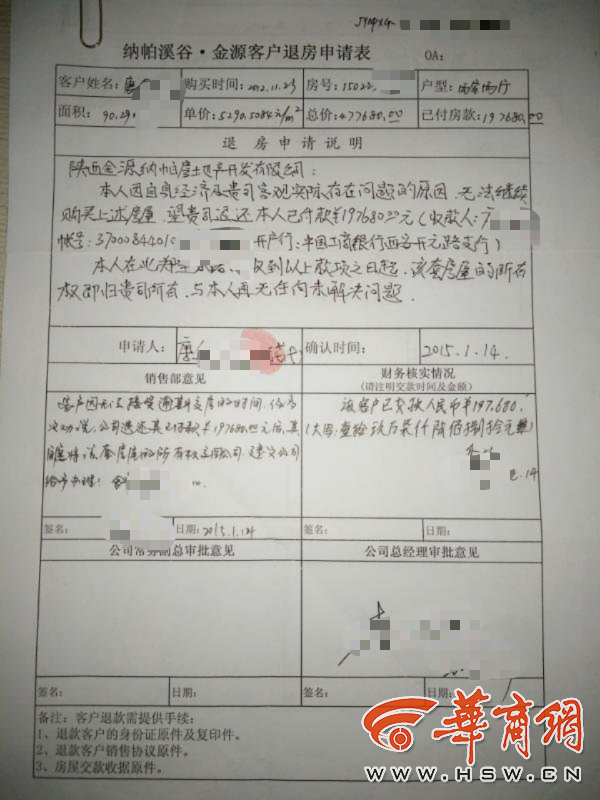 JYNPXG-
纳帕溪谷·金源客户退房申请表 OA:
客户姓名: 唐 购买时间: 2012.11.23 房号: 15022 户型: 两室两厅
面积: 90.29 单价: 5290.5084元/m² 总价: 477680.00 已付房款: 197680.00
退房申请说明
陕西金源纳帕房地产开发有限公司:
本人因自身经济及贵司客观实际存在问题的原因,无法继续
购买上述房屋,望贵司退还本人已付款¥197680.00元(收款人:
帐号: 3700084401 开户行:中国工商银行西安开元路支行)
本人在此郑重 收到以上款项之日起,该套房屋的所有
权即归贵司所有,与本人再无任何未解决问题.
申请人: 唐 确认时间: 2015.1.14.
销售部意见 财务核实情况
(请注明交款时间及金额)
客户因无法接受逾期交房的时间,
公司退还其已付款¥197680.00元后,其
该套房屋的所有权 公司.建议公司
给予办理!
该客户已交款人民币¥197,680.
(大写:壹拾玖万柒仟陆佰捌拾元整)
.14
签名: 日期: 2015.1.14 签名: 日期:
公司常务副总审批意见 公司总经理审批意见
签名: 日期: 签名: 日期:
备注:客户退款需提供手续:
1、退款客户的身份证原件及复印件。
2、退款客户销售协议原件。
3、房屋交款收据原件。
华商网
WWW.HSW.CN